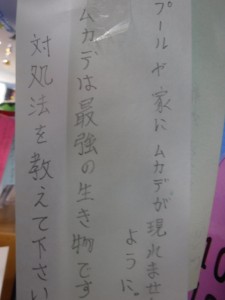 プールや家にムカデが現れませ
ように。
ムカデは最強の生き物です
対処法を教えて下さい